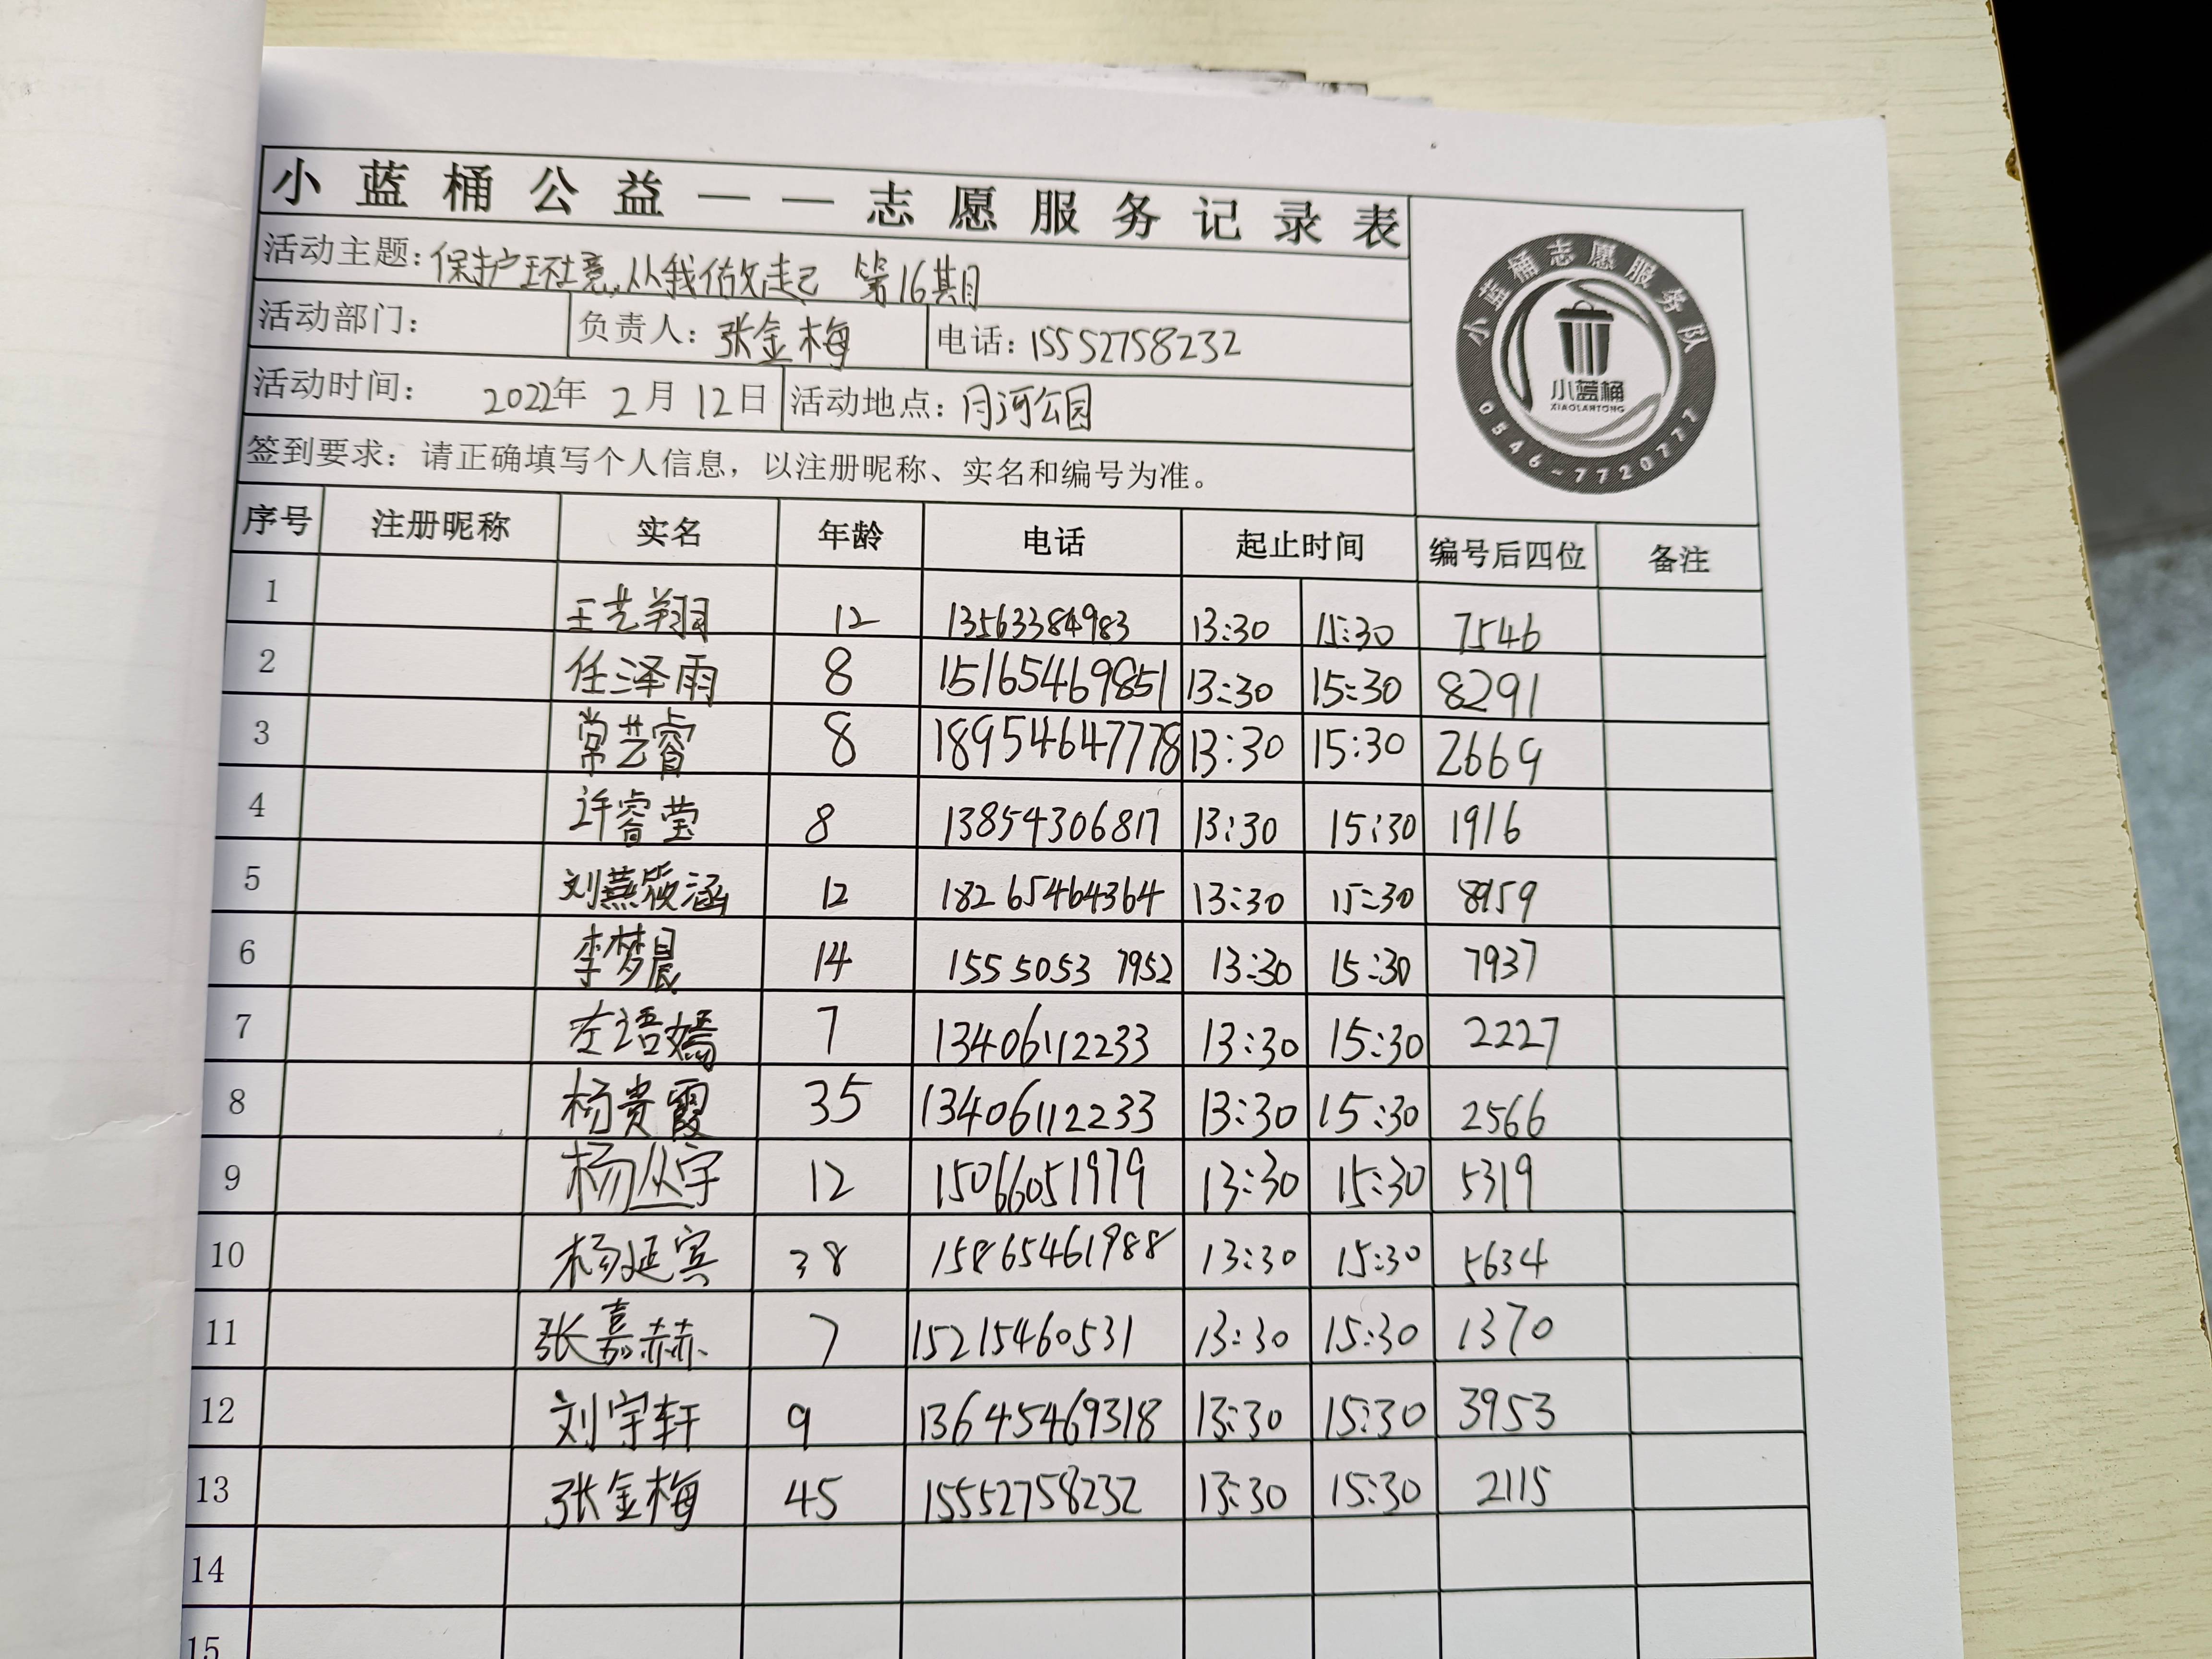 小蓝桶公益——志愿服务记录表
活动主题：保护环境，从我做起 第16期
活动部门： 负责人：张金梅 电话：15552758232
活动时间： 2022年 2月 12日 活动地点：月河公园
签到要求：请正确填写个人信息，以注册昵称、实名和编号为准。
小蓝桶志愿服务队
小蓝桶
XIAOLANTONG
0546-7720777
序号 注册昵称 实名 年龄 电话 起止时间 编号后四位 备注
1 王艺翔 12 13563384983 13:30 15:30 7546
2 任泽雨 8 15165469851 13:30 15:30 8291
3 常艺睿 8 18954647778 13:30 15:30 2669
4 许睿莹 8 13854306817 13:30 15:30 1916
5 刘燕筱涵 12 18265464364 13:30 15:30 8959
6 李梦晨 14 15550537952 13:30 15:30 7937
7 左语嫣 7 13406112233 13:30 15:30 2227
8 杨贵霞 35 13406112233 13:30 15:30 2566
9 杨丛宇 12 15066051979 13:30 15:30 5319
10 杨延宾 38 15865461988 13:30 15:30 5634
11 张嘉赫 7 15215460531 13:30 15:30 1370
12 刘宇轩 9 13645469318 13:30 15:30 3953
13 张金梅 45 15552758232 13:30 15:30 2115
14
15